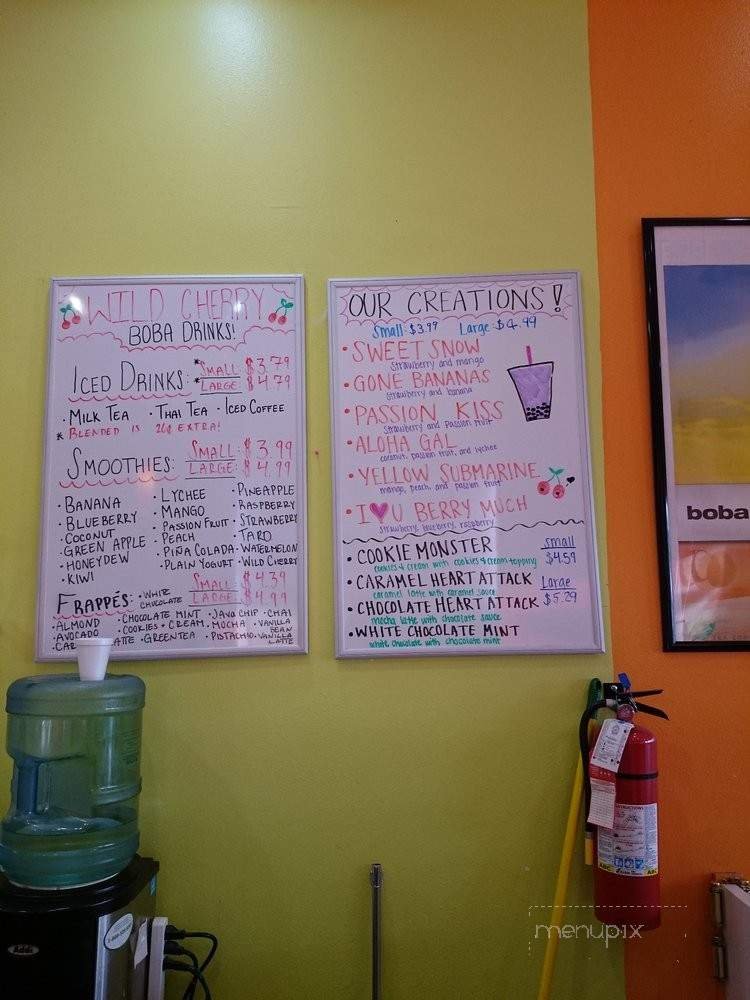 WILD CHERRY
BOBA DRINKS!
ICED DRINKS: *SMALL: $3.79
*LARGE: $4.79
· MILK TEA · THAI TEA · ICED COFFEE
* BLENDED IS 26¢ EXTRA!
SMOOTHIES: SMALL: $3.99
LARGE: $4.99
· BANANA
· BLUEBERRY
· COCONUT
· GREEN APPLE
· HONEYDEW
· KIWI
· LYCHEE
· MANGO
· PASSION FRUIT
· PEACH
· PIÑA COLADA
· PLAIN YOGURT
· PINEAPPLE
· RASPBERRY
· STRAWBERRY
· TARO
· WATERMELON
· WILD CHERRY
FRAPPÉS: · WHITE CHOCOLATE SMALL: $4.39
LARGE: $4.99
· ALMOND · CHOCOLATE MINT · JAVA CHIP · CHAI
· AVOCADO · COOKIES + CREAM · MOCHA · VANILLA BEAN
· CAR LATTE · GREEN TEA · PISTACHIO · VANILLA LATTE
OUR CREATIONS!
Small: $3.99 Large: $4.99
· SWEET SNOW
Strawberry and mango
· GONE BANANAS
Strawberry and banana
· PASSION KISS
Strawberry and Passion fruit
· ALOHA GAL
coconut, passion fruit, and lychee
· YELLOW SUBMARINE
mango, peach, and passion fruit
· I U BERRY MUCH
Strawberry, blueberry, raspberry
· COOKIE MONSTER small
cookies & cream with cookies & cream topping $4.59
· CARAMEL HEART ATTACK Large
caramel latte with caramel sauce $5.29
· CHOCOLATE HEART ATTACK
mocha latte with chocolate sauce
· WHITE CHOCOLATE MINT
white chocolate with chocolate mint
boba
ABC ABC
menupix